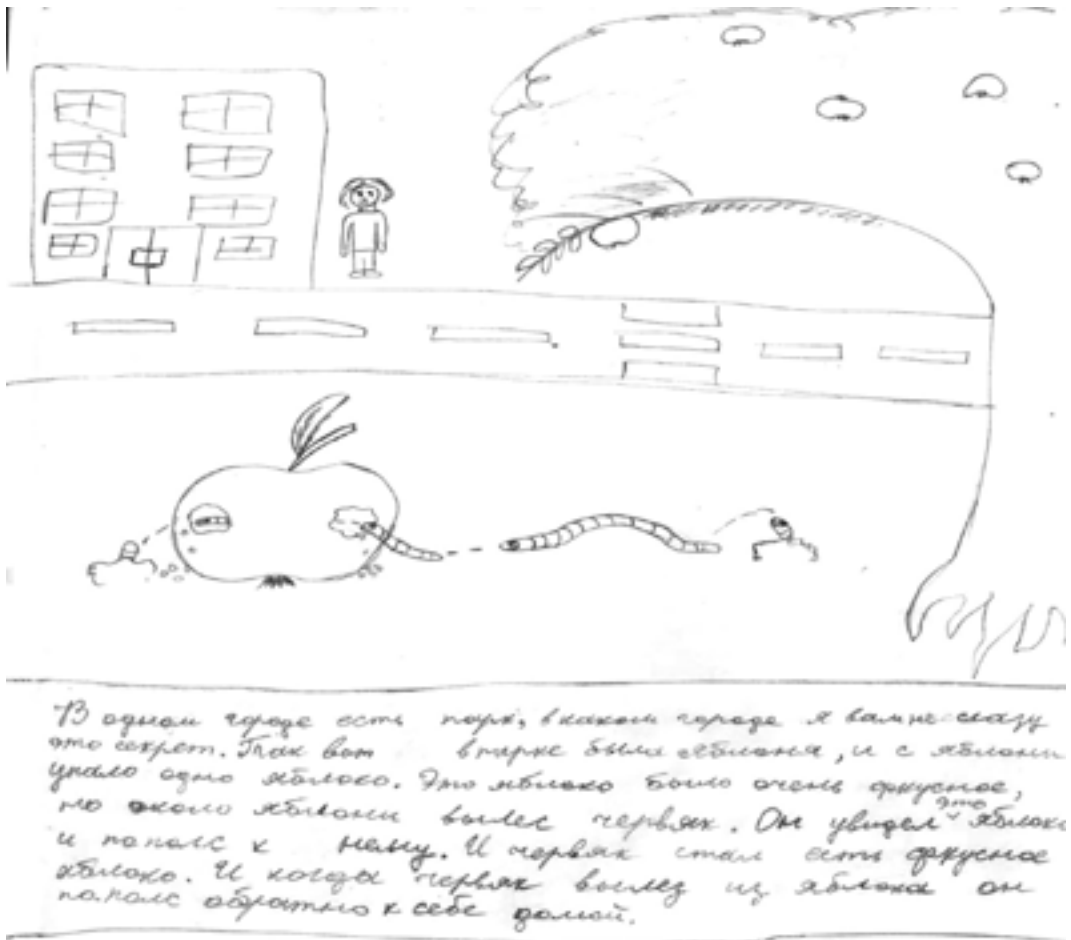 В одном городе есть парк, в каком городе я вам не скажу
это секрет. Так вот в парке была яблоня, и с яблони
упало одно яблоко. Это яблоко было очень фкусное,
но около яблони вылес червяк. Он увидел это яблоко
и пополс к нему. И червяк стал есть фкусное
яблоко. И когда червяк вылез из яблока он
пополс обратно к себе домой.